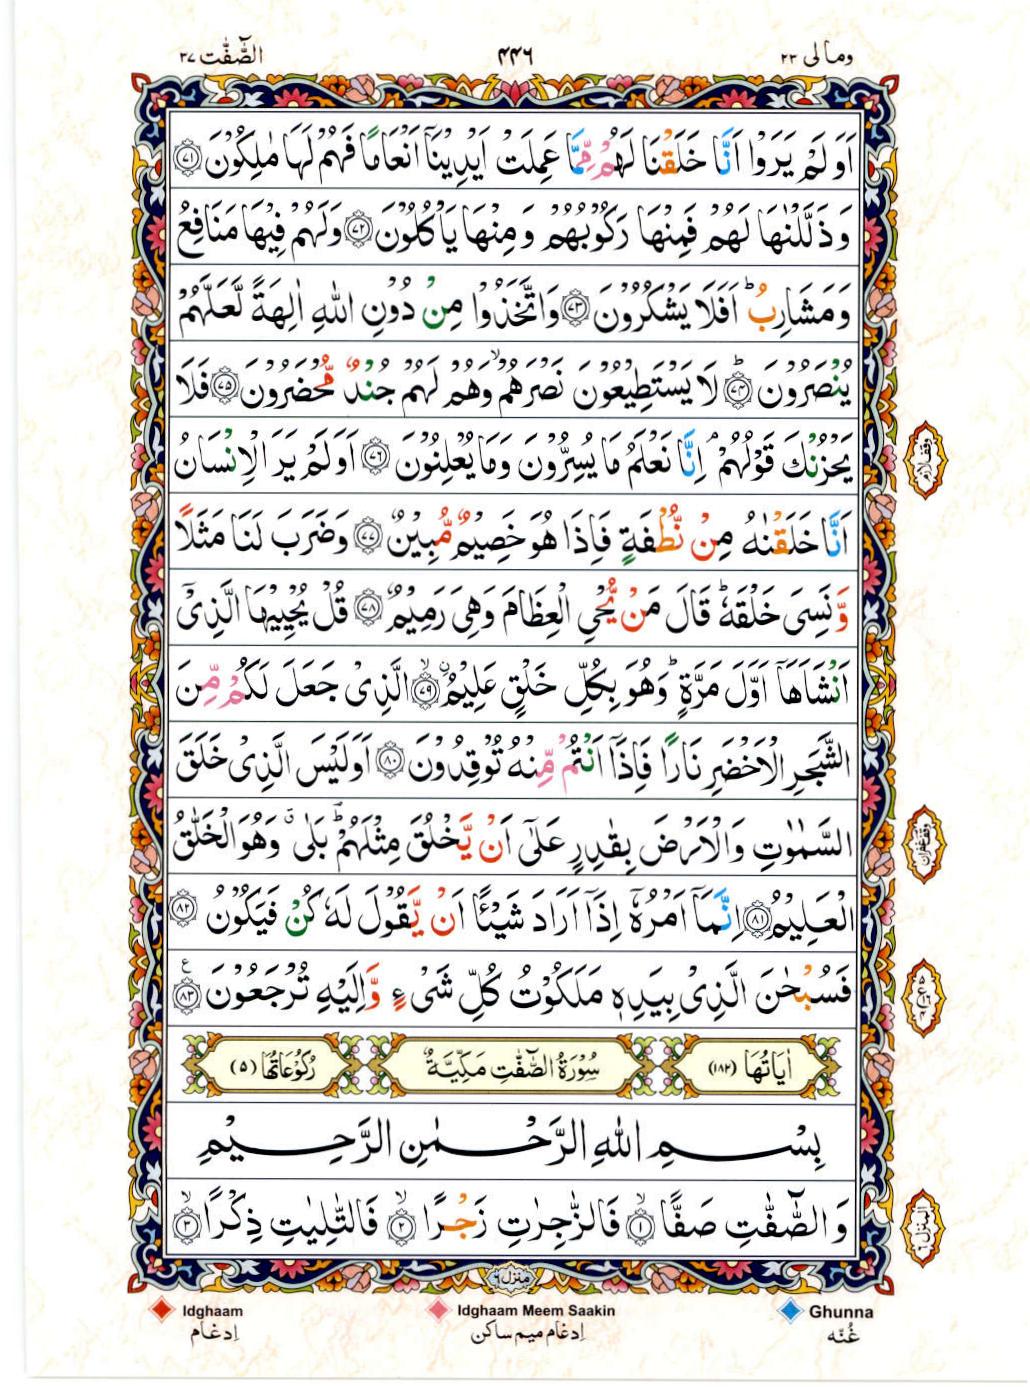 ومالى ٢٣
٤٤٦
الصّٰٓفّٰت ٣٧
اَوَلَمْ يَرَوْا اَنَّا خَلَقْنَا لَهُمْ مِّمَّا عَمِلَتْ اَيْدِيْنَآ اَنْعَامًا فَهُمْ لَهَا مٰلِكُوْنَ ﴿٧١﴾
وَذَلَّلْنٰهَا لَهُمْ فَمِنْهَا رَكُوْبُهُمْ وَمِنْهَا يَاْكُلُوْنَ ﴿٧٢﴾ وَلَهُمْ فِيْهَا مَنَافِعُ
وَمَشَارِبُ ؕ اَفَلَا يَشْكُرُوْنَ ﴿٧٣﴾ وَاتَّخَذُوْا مِنْ دُوْنِ اللّٰهِ اٰلِهَةً لَّعَلَّهُمْ
يُنْصَرُوْنَ ؕ ﴿٧٤﴾ لَا يَسْتَطِيْعُوْنَ نَصْرَهُمْ ۙ وَهُمْ لَهُمْ جُنْدٌ مُّحْضَرُوْنَ ﴿٧٥﴾ فَلَا
يَحْزُنْكَ قَوْلُهُمْ ۘ اِنَّا نَعْلَمُ مَا يُسِرُّوْنَ وَمَا يُعْلِنُوْنَ ﴿٧٦﴾ اَوَلَمْ يَرَ الْاِنْسَانُ
اَنَّا خَلَقْنٰهُ مِنْ نُّطْفَةٍ فَاِذَا هُوَ خَصِيْمٌ مُّبِيْنٌ ﴿٧٧﴾ وَضَرَبَ لَنَا مَثَلًا
وَّنَسِىَ خَلْقَهٗ ؕ قَالَ مَنْ يُّحْىِ الْعِظَامَ وَهِىَ رَمِيْمٌ ﴿٧٨﴾ قُلْ يُحْيِيْهَا الَّذِىْٓ
اَنْشَاَهَآ اَوَّلَ مَرَّةٍ ؕ وَهُوَ بِكُلِّ خَلْقٍ عَلِيْمٌ ۙ ﴿٧٩﴾ الَّذِىْ جَعَلَ لَكُمْ مِّنَ
الشَّجَرِ الْاَخْضَرِ نَارًا فَاِذَآ اَنْتُمْ مِّنْهُ تُوْقِدُوْنَ ﴿٨٠﴾ اَوَلَيْسَ الَّذِىْ خَلَقَ
السَّمٰوٰتِ وَالْاَرْضَ بِقٰدِرٍ عَلٰٓى اَنْ يَّخْلُقَ مِثْلَهُمْ ؕ بَلٰى ۗ وَهُوَ الْخَلّٰقُ
الْعَلِيْمُ ﴿٨١﴾ اِنَّمَآ اَمْرُهٗٓ اِذَآ اَرَادَ شَيْـًٔا اَنْ يَّقُوْلَ لَهٗ كُنْ فَيَكُوْنُ ﴿٨٢﴾
فَسُبْحٰنَ الَّذِىْ بِيَدِهٖ مَلَكُوْتُ كُلِّ شَىْءٍ وَّاِلَيْهِ تُرْجَعُوْنَ ﴿٨٣﴾ ع
اٰيَاتُهَا (١٨٢) سُوْرَةُ الصّٰٓفّٰتِ مَكِّيَّةٌ رُكُوْعَاتُهَا (٥)
بِسْمِ اللّٰهِ الرَّحْمٰنِ الرَّحِيْمِ
وَالصّٰٓفّٰتِ صَفًّا ۙ ﴿١﴾ فَالزّٰجِرٰتِ زَجْرًا ۙ ﴿٢﴾ فَالتّٰلِيٰتِ ذِكْرًا ۙ ﴿٣﴾
وقف لازم
وقف غفران
المنزل ٦
منزل ٦
Ghunna
غُنّه
Idghaam Meem Saakin
اِدغام ميم ساكن
Idghaam
اِدغام